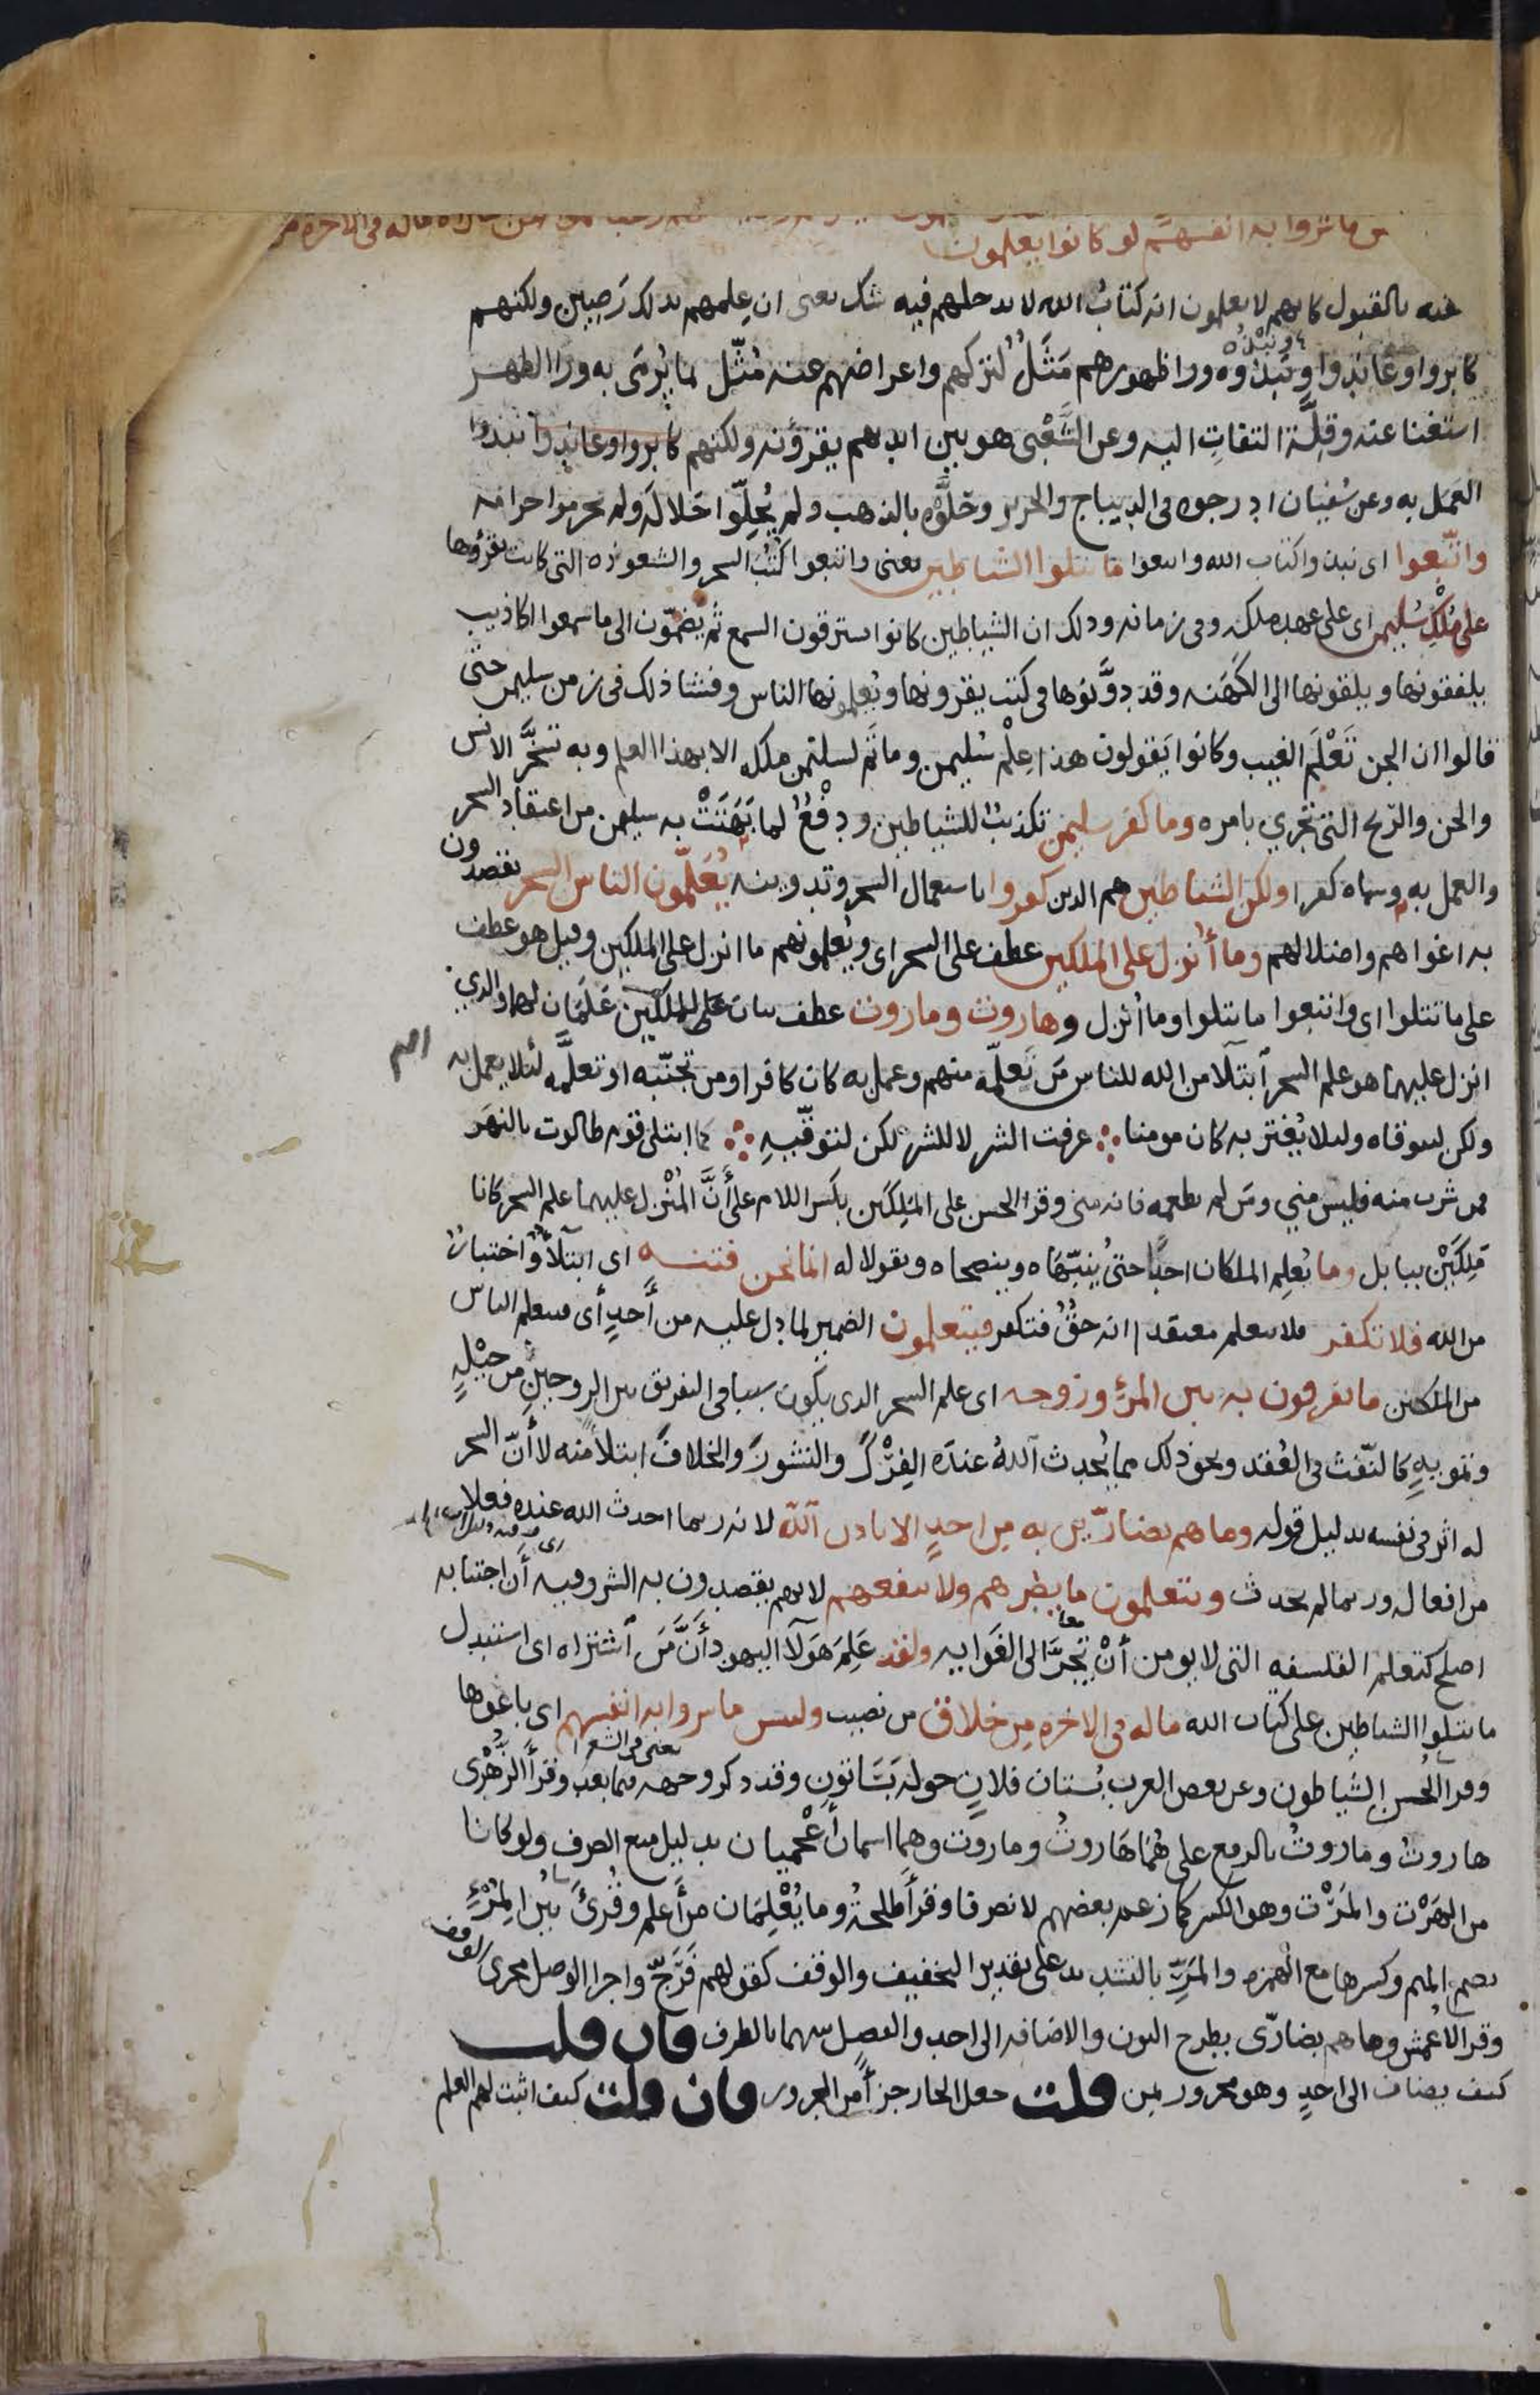 ماله في الاخره من
ما شروا به انفسهم لو كانوا يعلمون
بالقبول كانهم لا يعلمون انه كتاب الله لا يدخلهم فيه شك يعنى ان علمهم بذلك رصين ولكنهم
كابروا وعاندوا ونبذوه ورا ظهورهم مَثَلٌ لتركهم واعراضهم عنه مُثّل بما يُرمَى به ورا الظهر
استغنا عنه وقِلّة التفاتٍ اليه وعن الشَّعْبى هو بين ايديهم يقرؤنه ولكنهم كابروا وعاندوا نبذوا
العمل به وعن سُفيان ادرجوه في الديباج والحرير وحَلَّوْه بالذهب ولم يُحِلّوا حَلالَه ولم يحرموا حرامه
واتّبعوا اى نبذوا كتاب الله واتبعوا ما تتلوا الشياطين يعنى واتبعوا كُتُب السحر والشعوذه التى كانت تقرؤها
على مُلْكِ سُليمن اى على عهد ملكه وفى زمانه وذلك ان الشياطين كانوا يسترقون السمع ثم يضمّون الى ما سمعوا اكاذيب
يلفقونها ويلقونها الى الكَهَنه وقد دوَّنوها في كتب يقرونها ويُعلمونها الناس وفشا ذلك فى زمن سليمن حتّى
قالوا ان الجن تَعْلَم الغيب وكانوا يقولون هذا عِلْم سُليمن وما تَم لسليمن ملكه الا بهذا العلم وبه تسخَّر الانس
والجن والرّيح التى تجري بامره وما كفر سليمن تكذيبٌ للشياطين ودفْعٌ لما بَهَتَتْ به سليمن من اعتقاد السحر
والعمل به وسماه كفرا ولكن الشياطين هم الذين كفروا باستعمال السحر وتدوينه يُعَلّمون الناس السحر يقصدون
به اغواهم واضلالهم وما أُنزل على الملكين عطف على السحر اى ويُعلمونهم ما انزل على الملكين وقيل هو عطف
على ما تتلوا اى واتبعوا ما تتلوا وما أنزل وهاروت وماروت عطف بيان على الملكين عَلَمَان لهما والذي
انزل عليهما هو علم السحر ابتلآ من الله للناس مَن تعلّمه منهم وعمل به كان كافرا ومن تجنّبه او تعلَّمه لئلا يعمل به
ولكن ليتوقاه ولئلا يُغترّ به كان مومنا عرفت الشر لا للشر لكن لتوقّيهِ كما ابتلى قوم طالوت بالنهَر
فمن شرب منه فليس مني ومَن لم يطعمه فانه منى وقرا الحسن على المَلِكَين بكسر اللام على أنَّ المُنْزل عليهما علم السحر كانا
مَلِكَيْن ببابل وما يُعلم الملكان احدًا حتى يُنبّهَاه وينصحاه ويقولا له انما نحن فتنه اى ابتلآ واختبارٌ
من الله فلا تكفر فلا تتعلم معتقدا انه حقٌ فتكفر فيتعلمون الضمير لما دل عليه من أحدٍ أى فيتعلم الناس
من الملكين ما يفرقون به بين المرْء وزوجه اى علم السحر الذى يكون سببا في التفريق بين الزوجين من حيْلهٍ
وتمويهٍ كالنّفث فى العُقد ونحو ذلك مما يُحدث اللهُ عندَه الفِرْكَ والنشوزَ والخلافَ ابتلاً منه لا أنّ السحر
له اثر فى نفسه بدليل قوله وما هم بضارّين به من احدٍ الا باذن الله لانه ربما احدث الله عنده فعلا
من افعاله وربما لم يحدث ويتعلمون ما يضرهم ولا ينفعهم لانهم يقصدون به الشر وفيه أن اجتنابه
اصلح كتعلم الفلسفه التى لا يومن أنْ تَجُرَّ الى الغَوايه ولقد عَلِمَ هَولآ اليهود أَنَّ مَن اشتراه اى استبدل
ما تتلوا الشياطين على كتاب الله ما له فى الاخره من خلاق من نصيب ولبئس ما شروا به انفسهم اى باعوها
وقرا الحُسن الشياطون وعن بعض العرب بُستان فلانٍ حوله بَسَاتون وقد ذكر وجهه فيما بعد وقرأ الزُّهْرى
هاروتُ وماروتُ بالرفع على هُمَا هَاروتُ وماروت وهما اسمان أعْجميان بدليل منع الصرف ولو كانا
من الهَرْت والمَرْت وهو الكسر كما زعم بعضهم لانصرفا وقرأ طلحة وما يُعْلِمَان من أعلم وقُرئ بين المُرْءِ
بضم الميم وكسرها مع الهمزه والمَرِّ بالتشديد على تقدير التخفيف والوقف كقولهم فَرَجّ واجرا الوصل مجرى الوقف
وقرا الاعمش وما هم بضارّى بطرح النون والاضافه الى احد والفصل بينهما بالظرف فان قلت
كيف يضاف الى احدٍ وهو مجرور بمن قلت جعل الجار جزأً من المجرور فان قلت كيف اثبت لهم العلم